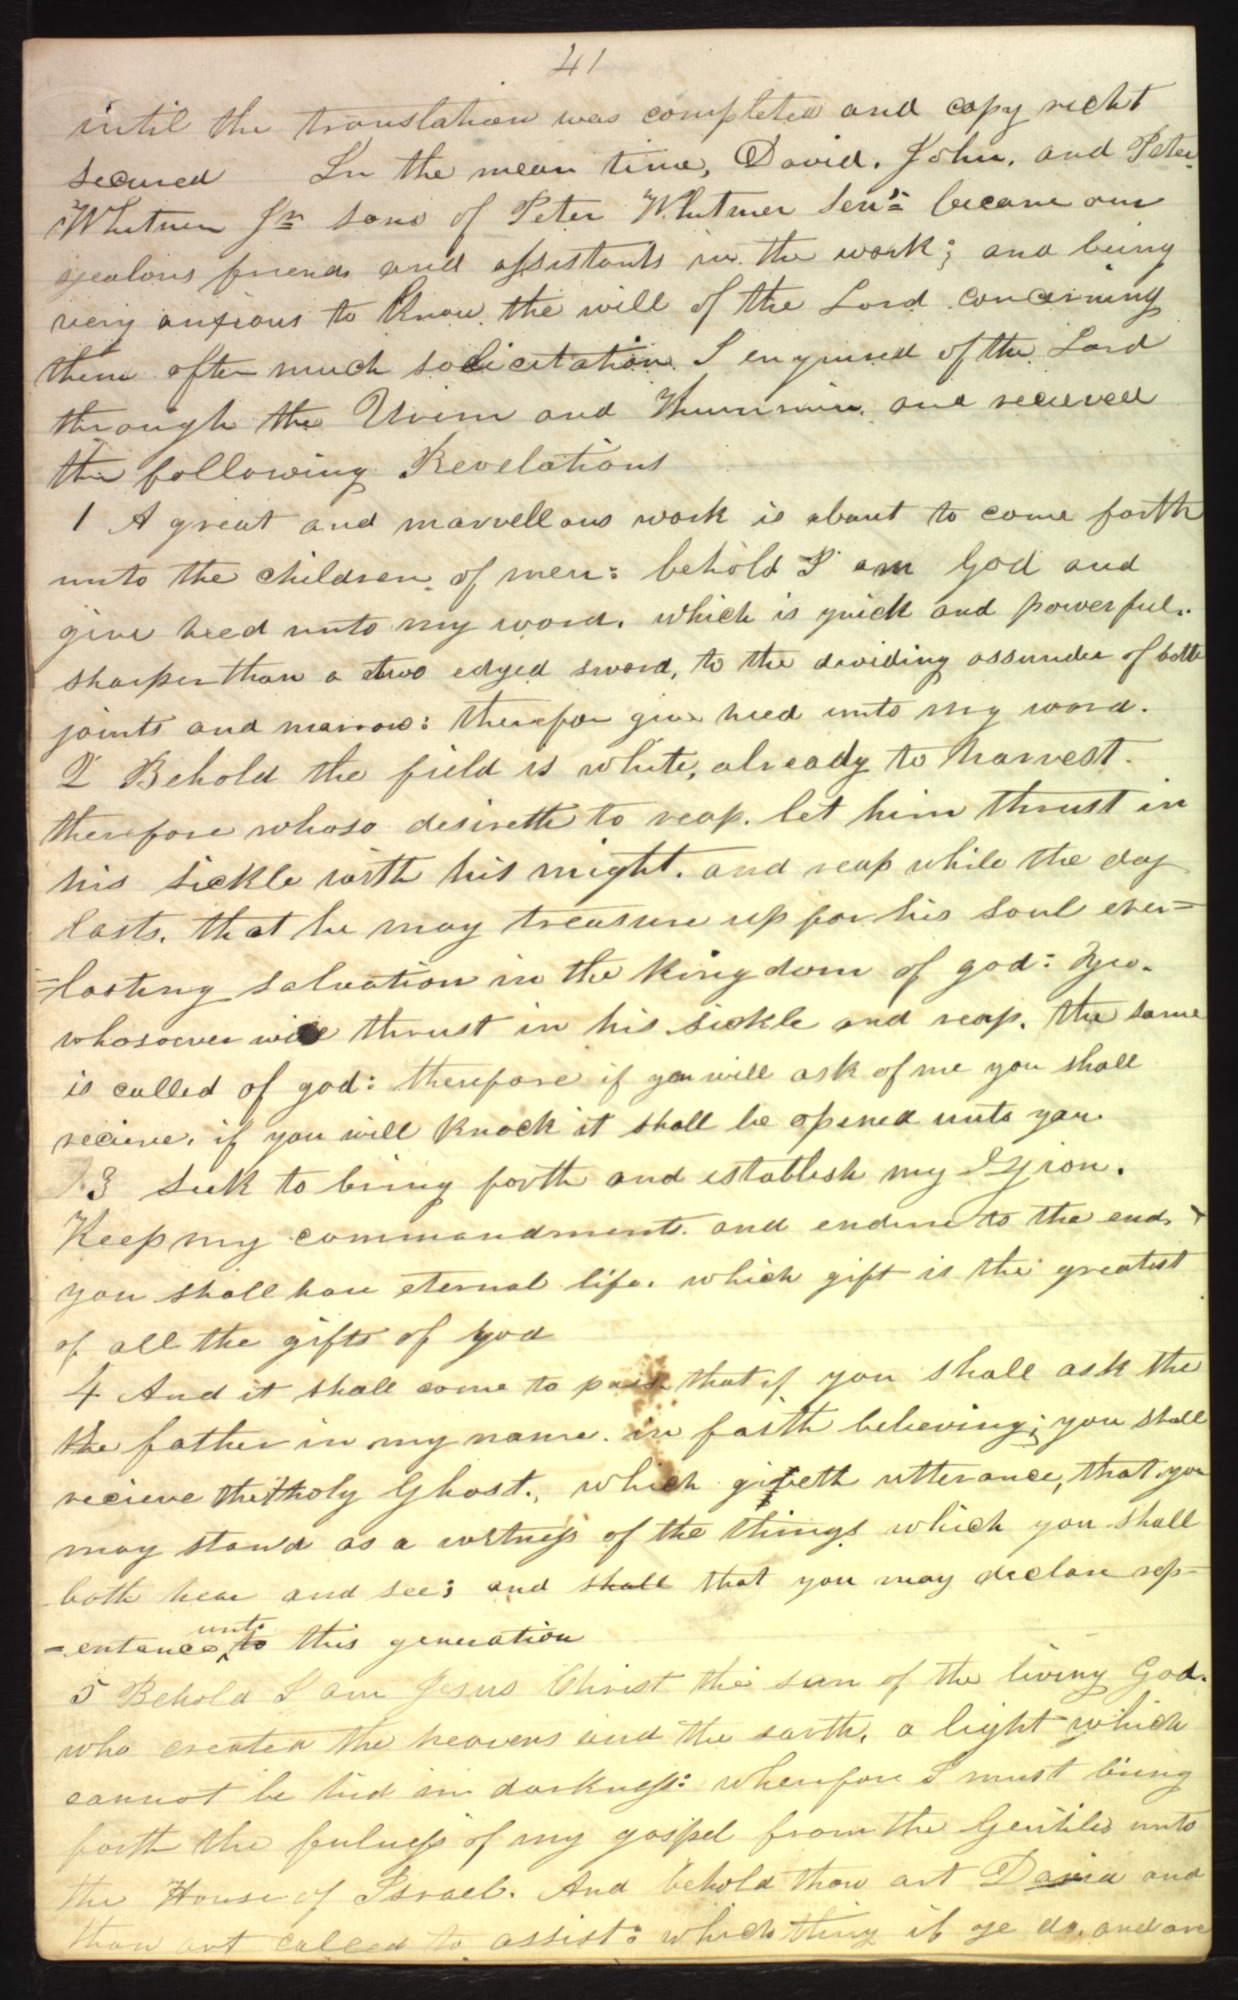 41
until the translation was completed and copy richt
secured In the mean time, David, John, and Peter
Whitmer Jr sons of Peter Whitmer Senr became our
zealous friends and assistants in the work; and being
very anxious to know the will of the Lord concerning
them after much solicitation I enquired of the Lord
through the Urim and Thummim and recieved
the following Revelations
1 A great and marvellous work is about to come forth
unto the children of men: behold I am God and
give heed unto my word, which is quick and powerful,
sharper than a two edged sword, to the dividing assunder of both
joints and marrow: therefore give heed unto my word.
2 Behold the field is white, already to harvest.
therefore whoso desireth to reap. let him thrust in
his sickle with his might, and reap while the day
lasts, that he may treasure up for his soul ever=
=lasting salvation in the kingdom of god: Yea.
whosoever will thrust in his sickle and reap, the same
is called of god: therefore if you will ask of me you shall
recieve, if you will knock it shall be opened unto you.
3 Seek to bring forth and establish my Zion.
Keep my commandments and endure to the end,
you shall have eternal life, which gift is the greatest
of all the gifts of god
4 And it shall come to pass that if you shall ask the
the father in my name. in faith believing; you shall
recieve the holy Ghost, which giveth utterance, that you
may stand as a witness of the things which you shall
both hear and see; and shall that you may declare rep-
=entance unto to this generation
5 Behold I am Jesus Christ the son of the living God.
who created the heavens and the earth, a light which
cannot be hid in darkness: wherefore I must bring
forth the fulness of my gospel from the Gentiles unto
the House of Israel. And behold thou art David and
thou art called to assist: which thing if ye do, and are